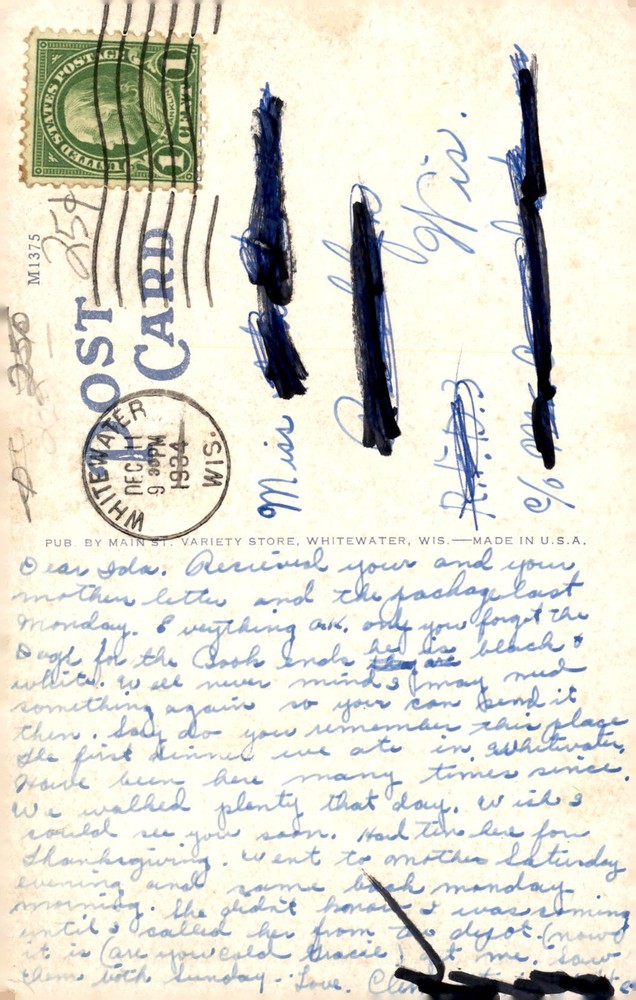 UNITED STATES POSTAGE
FRANKLIN
1 CENT 1
M1375
25¢
250
POST
CARD
WHITEWATER
DEC 11
9 30 PM
1934
WIS.
Miss
Wis.
R.F.D.3
c/o
PUB. BY MAIN ST. VARIETY STORE, WHITEWATER, WIS.—MADE IN U.S.A.
Dear Ida. Recieved your and your
mother letter and the package last
Monday. Everything ok. only you forgot the
Dogs for the Book ends he is black &
white. Well never mind I may need
something again so your can send it
then. Say do you remember this place
the first dinner we ate in Whitewater.
Have been here many times since.
We walked plenty that day. Wish I
could see you soon. Had ten here for
Thanksgiving. Went to mother Saturday
evening and came back monday
morning. She didn't know I was coming
until I called her from the depot. (now
it is (are you cold Gracie) get me. Saw
them both Sunday. Love.